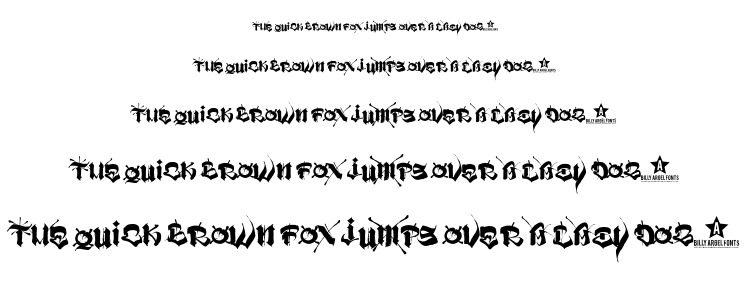 THE QUiCK BROWN FOX JUMPS OVER A LAZY DOG
THE QUiCK BROWN FOX JUMPS OVER A LAZY DOG BILLY ARGEL FONTS
THE QUiCK BROWN FOX JUMPS OVER A LAZY DOG BILLY ARGEL FONTS
THE QUiCK BROWN FOX JUMPS OVER A LAZY DOG BILLY ARGEL FONTS
THE QUiCK BROWN FOX JUMPS OVER A LAZY DOG BILLY ARGEL FONTS